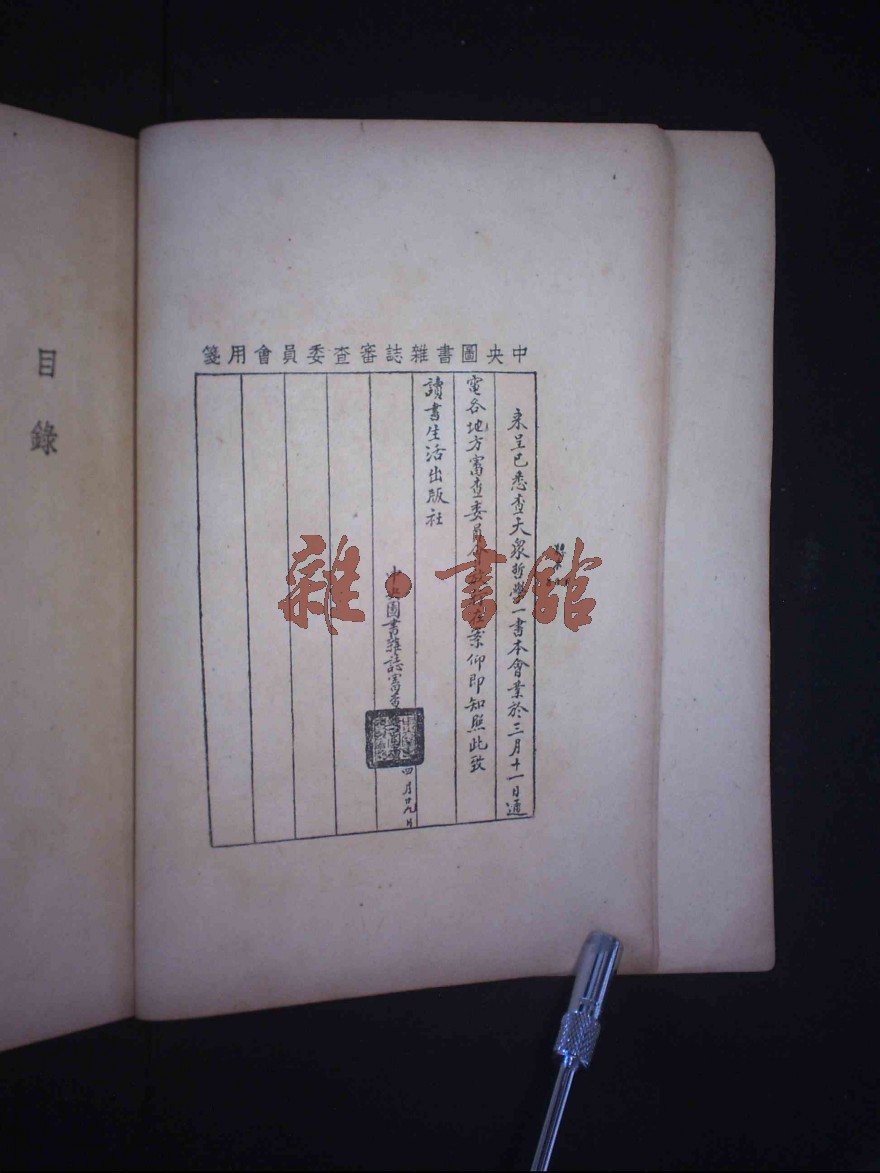 中央圖書雜誌審查委員會用箋
來呈已悉查大衆哲學一書本會業於三月十一日通
電各地方審查委員會
在案仰即知照此致
讀書生活出版社
中央圖書雜誌審查
四月廿九日
目錄
雜·書館